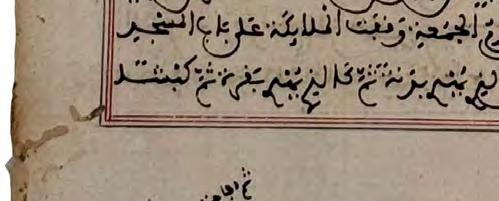 الجمعة وقفت الملايكة على باب المسجد
يهدي بدنة ثم كالذي يهدي بقرة ثم كبشا